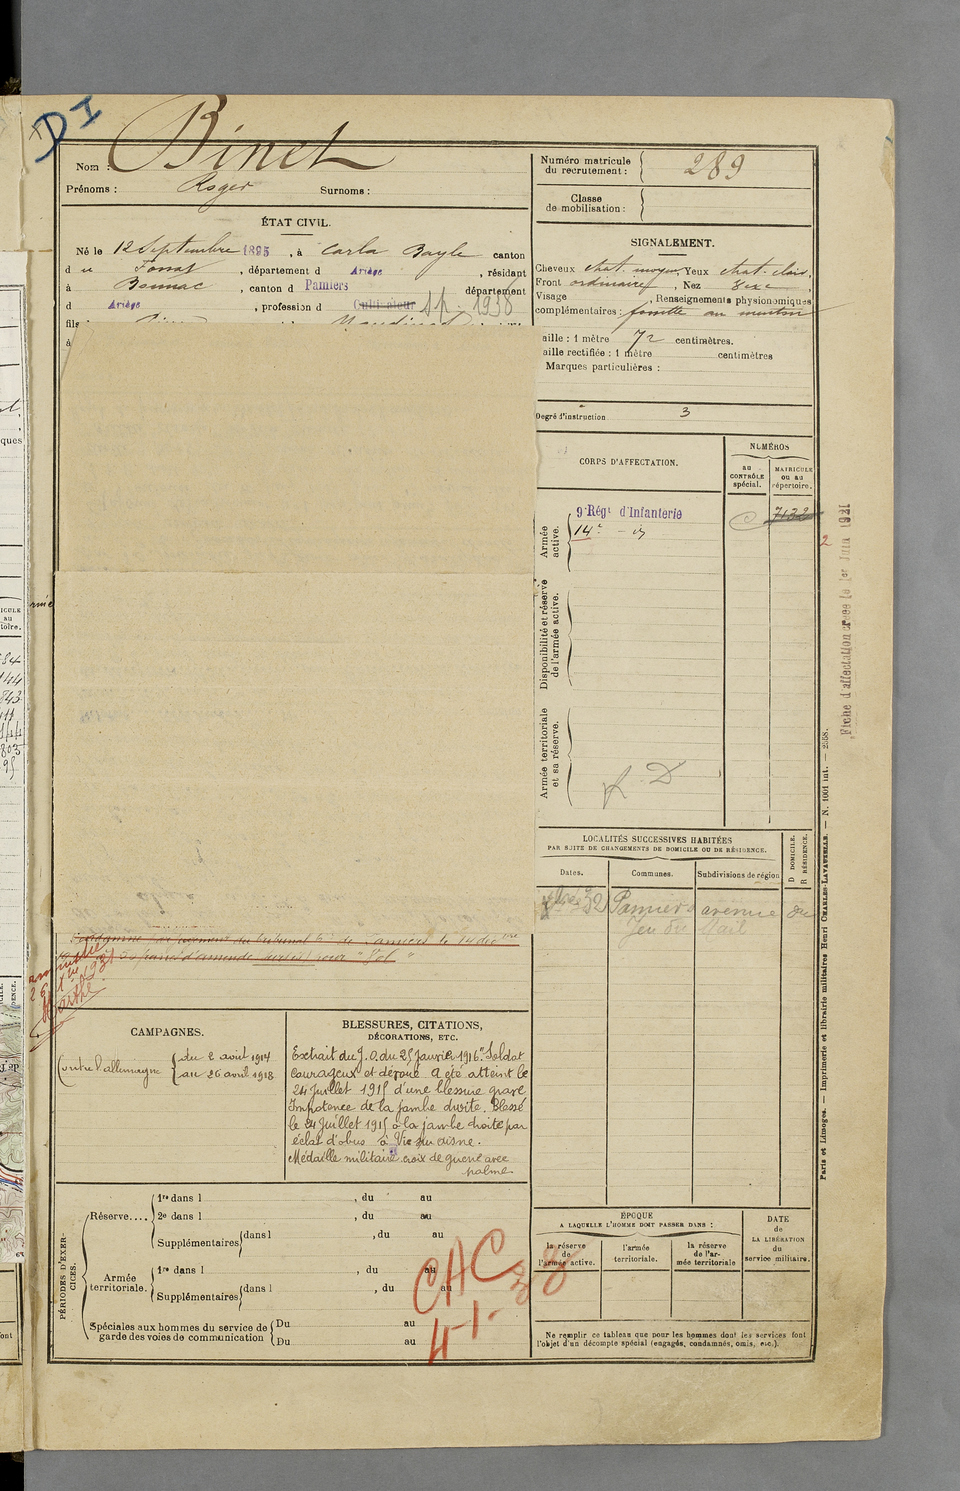 DI
Nom : Binet
Prénoms : Roger Surnoms :
Numéro matricule du recrutement : 289
Classe de mobilisation :
ÉTAT CIVIL.
Né le 12 Septembre 1895, à Carla Bayle canton
du Fossat, département d Ariège, résidant
à Bonnac, canton d Pamiers département
d Ariège, profession d Cultivateur
fils
à
SIGNALEMENT.
Cheveux chat. moyen, Yeux chat. clair,
Front ordinaire, Nez
Visage , Renseignements physionomiques
complémentaires : fossette au menton
aille : 1 mètre 72 centimètres.
aille rectifiée : 1 mètre centimètres
Marques particulières :
Degré d'instruction 3
CORPS D'AFFECTATION.
NUMÉROS
au CONTRÔLE spécial.
MATRICULE ou au répertoire.
Armée active.
9e Régt d'Infanterie
7132
14e
Disponibilité et réserve de l'armée active.
Armée territoriale et sa réserve.
R D
Fiche d'affectation créée le 1er Juin 1921
LOCALITÉS SUCCESSIVES HABITÉES
PAR SUITE DE CHANGEMENTS DE DOMICILE OU DE RÉSIDENCE.
Dates. Communes. Subdivisions de région
D DOMICILE.
R RÉSIDENCE.
32 Pamiers avenue du
Jeu du Mail
du tribunal de Pamiers le 14
d'amende
CAMPAGNES.
Contre l'allemagne
du 2 août 1914
au 26 avril 1918
BLESSURES, CITATIONS,
DÉCORATIONS, ETC.
Extrait du J.O. du 25 Janvier 1916 "Soldat
courageux et dévoué a été atteint le
24 Juillet 1915 d'une blessure grave
Impotence de la jambe droite. Blessé
le 24 Juillet 1915 à la jambe droite par
éclat d'obus à Vic sur aisne.
Médaille militaire croix de guerre avec
palme
PÉRIODES D'EXERCICES.
Réserve....
1re dans l , du au
2e dans l , du au
Supplémentaires dans l , du au
Armée territoriale.
1re dans l , du au
Supplémentaires dans l , du au
Spéciales aux hommes du service de garde des voies de communication
Du au
Du au
CAC
ÉPOQUE
A LAQUELLE L'HOMME DOIT PASSER DANS :
la réserve de l'armée active.
l'armée territoriale.
la réserve de l'armée territoriale
DATE de LA LIBÉRATION du service militaire.
Ne remplir ce tableau que pour les hommes dont les services font
l'objet d'un décompte spécial (engagés, condamnés, omis, etc.).
Paris et Limoges. — Imprimerie et librairie militaires Henri CHARLES-LAVAUZELLE. — N. 1001 int. — 2558.